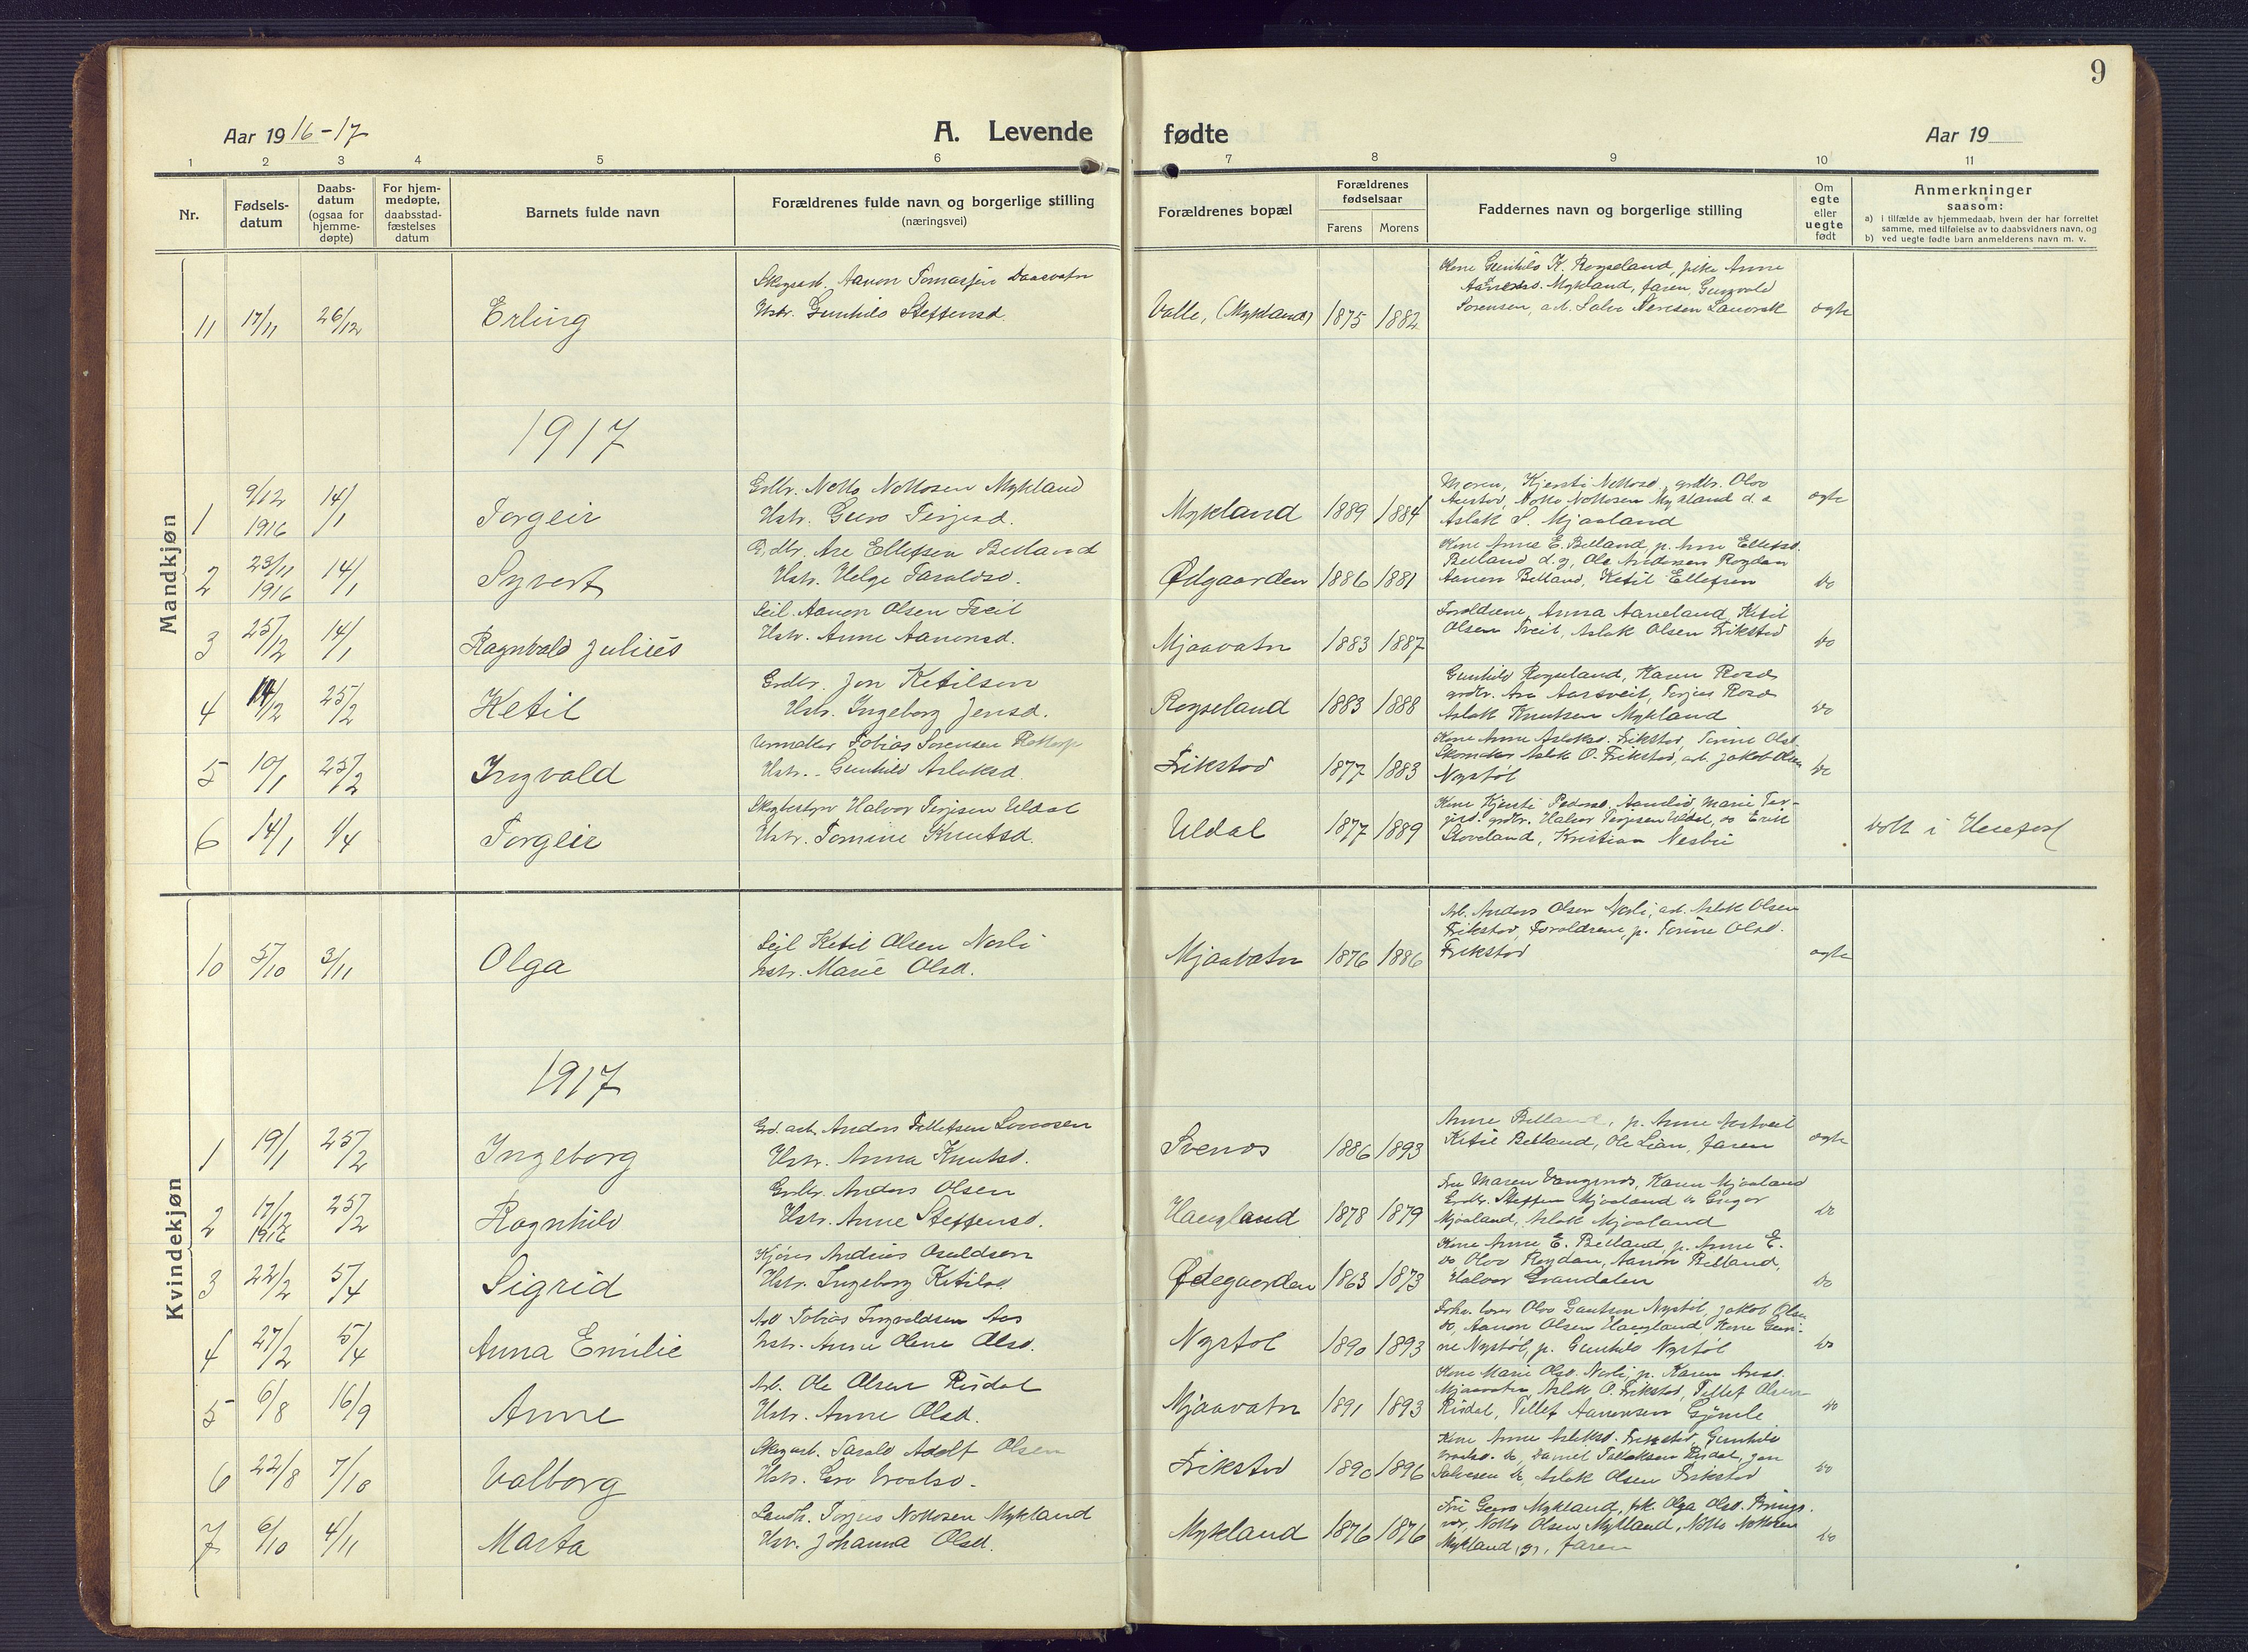 9
Aar 1916-17
A. Levende fødte
Aar 19
1 2 3 4 5 6 7 8 9 10 11
Nr.
Fødsels-
datum
Daabs-
datum
(ogsaa for
hjemme-
døpte)
For hjem-
medøpte,
daabsstad-
fæstelses
datum
Barnets fulde navn
Forældrenes fulde navn og borgerlige stilling
(næringsvei)
Forældrenes bopæl
Forældrenes
fødselsaar
Farens Morens
Faddernes navn og borgerlige stilling
Om
egte
eller
uegte
født
Anmerkninger
saasom:
a) i tilfælde av hjemmedaab, hvem der har forrettet
samme, med tilføielse av to daabsvidners navn, og
b) ved uegte fødte barn anmelderens navn m. v.
Mandkjøn
11 17/11 26/12 Erling
Skogsarb. Aanon Tomassen Daasvatn
Hstr. Gunhild Steffensd.
Valle, (Mykland) 1875 1882
Kone Gunhild K. Røyseland, pike Anne
Mykland, faren, Gunvald
Sorensen, arb.
ægte
1917
1 9/12 1916 14/1 Torgeir
Grdbr. Notto Nottosen Mykland
Hstr. Guro Terjesd.
Mykland 1889 1884
Moren, Kjersti Nottosd., grdbr. Olav
Austad, Notto Nottosen Mykland d. e
Aslak S. Mjaaland
ægte
2 23/11 1916 14/1 Syvert
Grdbr. Are Ellefsen Belland
Hstr. Helge Taraldsd.
Ødgaarden 1886 1881
Kone Anne E. Belland, p. Anne Ellefsd.
Belland d. y, Ole Andersen Røydan
Aanon Belland, Ketil Ellefsen
do
3 25/12 14/1 Ragnvald Julius
Leil. Aanon Olsen Tveit
Hstr. Anne Aanonsd.
Mjaavatn 1883 1887
Foreldrene, Anna Aaneland, Ketil
Olsen Tveit, Aslak Olsen Frikstad
do
4 14/12 25/2 Ketil
Grdbr. Jon Ketilsen
Hstr. Ingeborg Jensd.
Røyseland 1883 1888
Gunhild Røyseland, Karen
grdbr. Are
Aslak Knutsen Mykland
do
5 10/1 25/2 Ingvald
Urmaker Tobias Sorensen
Hstr. Gunhild Aslaksd.
Frikstad 1877 1883
Kone Anne Aslaksd. Frikstad, Torine Olsd.
Skomaker Aslak O. Frikstad, arb. Jakob Olsen
Nystøl
do
6 14/1 1/4 Torgeir
Skogbestyr. Halvor Terjesen Uldal
Hstr. Tomine Knutsd.
Uldal 1877 1889
Kone Kjersti Pedersd. Aamlid, Marie Ter-
jesd. grdbr. Halvor Terjesen Uldal, do
Skoveland, Kristian Nesbu
døbt i Herefoss
Kvindekjøn
10 5/10 3/11 Olga
Leil Ketil Olsen Nesli
Hstr. Marie Olsd.
Mjaavatn 1876 1886
Arb. Anders Olsen Nesli, arb. Aslak Olsen
Frikstad, Foreldrene, p. Torine Olsd.
Frikstad
ægte
1917
1 19/1 25/2 Ingeborg
Grd. arb. Anders Tellefsen
Hstr. Anna Knutsd.
Svenos 1886 1893
Anne Belland, p. Anne
Ketil Belland, Ole Lian, faren
ægte
2 17/12 1916 25/2 Ragnhild
Grdbr. Anders Olsen
Hstr. Anne Steffensd.
Haugland 1878 1879
Fru Maren Vangsnes, Karen Mjaaland
Grdbr. Steffen Mjaaland do Gregar
Mjaaland, Aslak Mjaaland
do
3 22/2 5/4 Sigrid
Andreas Osuldsen
Hstr. Ingeborg Ketilsd.
Ødegaarden 1863 1873
Kone Anne E. Belland, p. Anne E.
do Olav Røydan, Aanon Belland,
Halvor Grandalen
do
4 27/2 5/4 Anna Emilie
Tobias Ingvaldsen Aas
Hstr. Anne Olene Olsd.
Nystøl 1890 1893
Olav Gautsen Nystøl, Jakob Olsen
do, Aanon Olsen Haugland, Kone Gun-
ne Nystøl, p. Gunhild Nystøl
do
5 6/8 16/9 Anne
Arb. Ole Olsen Risdal
Hstr. Anne Olsd.
Mjaavatn 1891 1893
Kone Marie Olsd. Nesli, p. Karen
Mjaavatn, Aslak O. Frikstad, Tellef Olsen
Risdal, Tellef Aanonsen
do
6 22/8 7/10 Valborg
Skogarb. Tarald Adolf Olsen
Hstr. Gro
Frikstad 1890 1896
Kone Anne Aslaksd. Frikstad, Gunhild
do, Daniel Risdal, Jon
Salvesen do, Aslak Olsen Frikstad
do
7 6/10 4/11 Marta
Landh. Torjus Nottosen Mykland
Hstr. Johanna Olsd.
Mykland 1876 1876
Fru Guro Mykland, frk. Olga Olsd. Brings
vær, Notto Olsen Mykland, Notto Nottosen
Mykland, faren
do